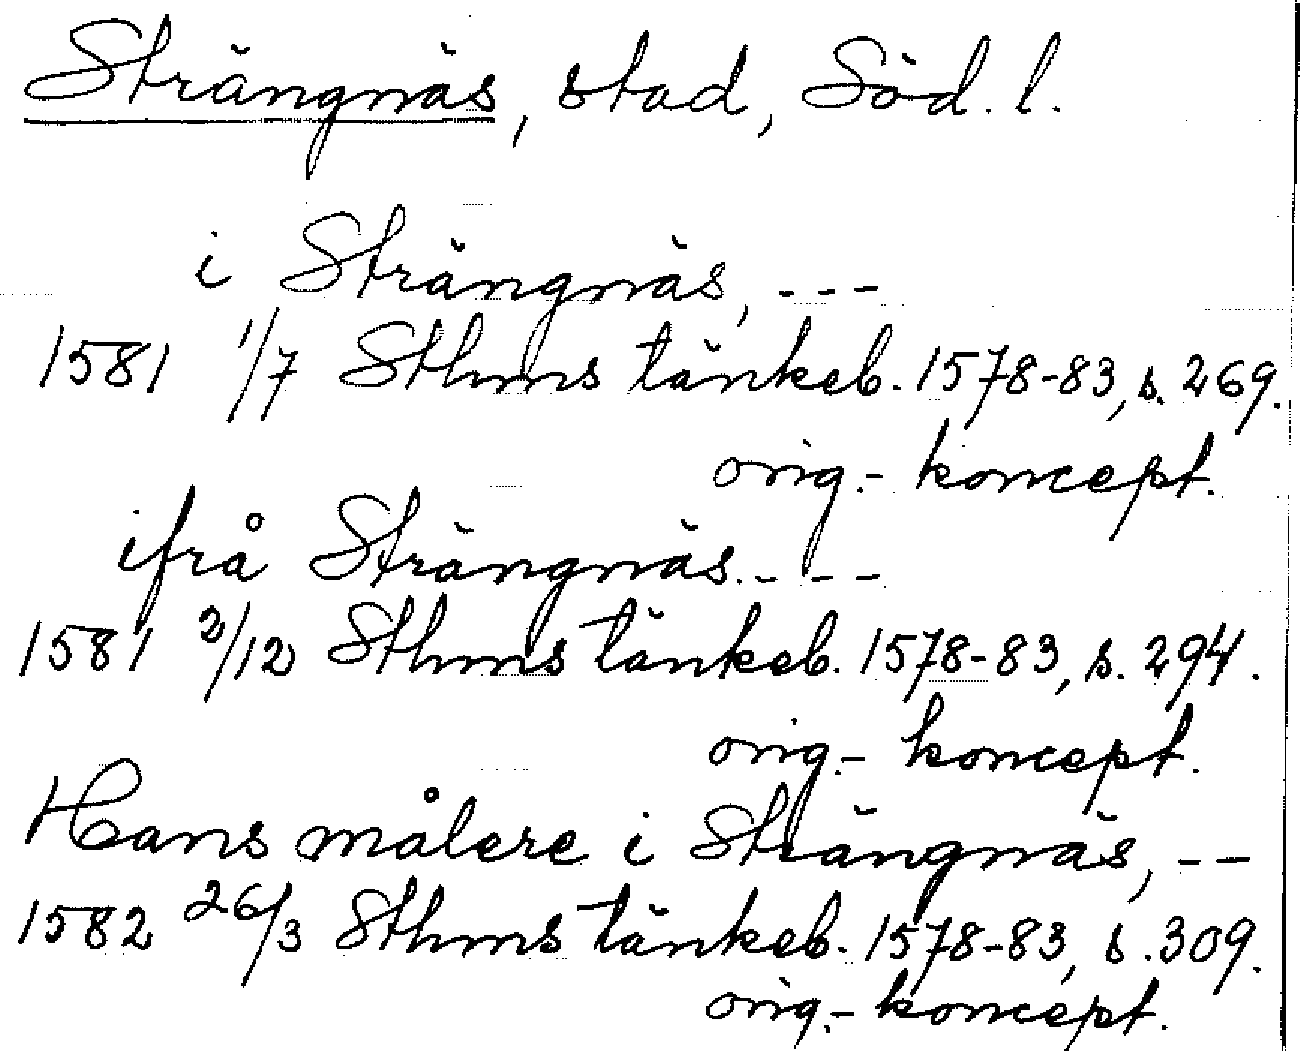 Strängnäs, stad, Söd. l.
i Strängnäs, ---
1581 1/7 Sthms tänkeb. 1578-83, s. 269.
orig.- koncept.
ifrå Strängnäs. - - -
1581 2/12 Sthms tänkeb. 1578-83, s. 294.
orig.- koncept.
Hans målere i Strängnäs, --
1582 26/3 Sthms tänkeb. 1578-83, s. 309.
orig.- koncept.